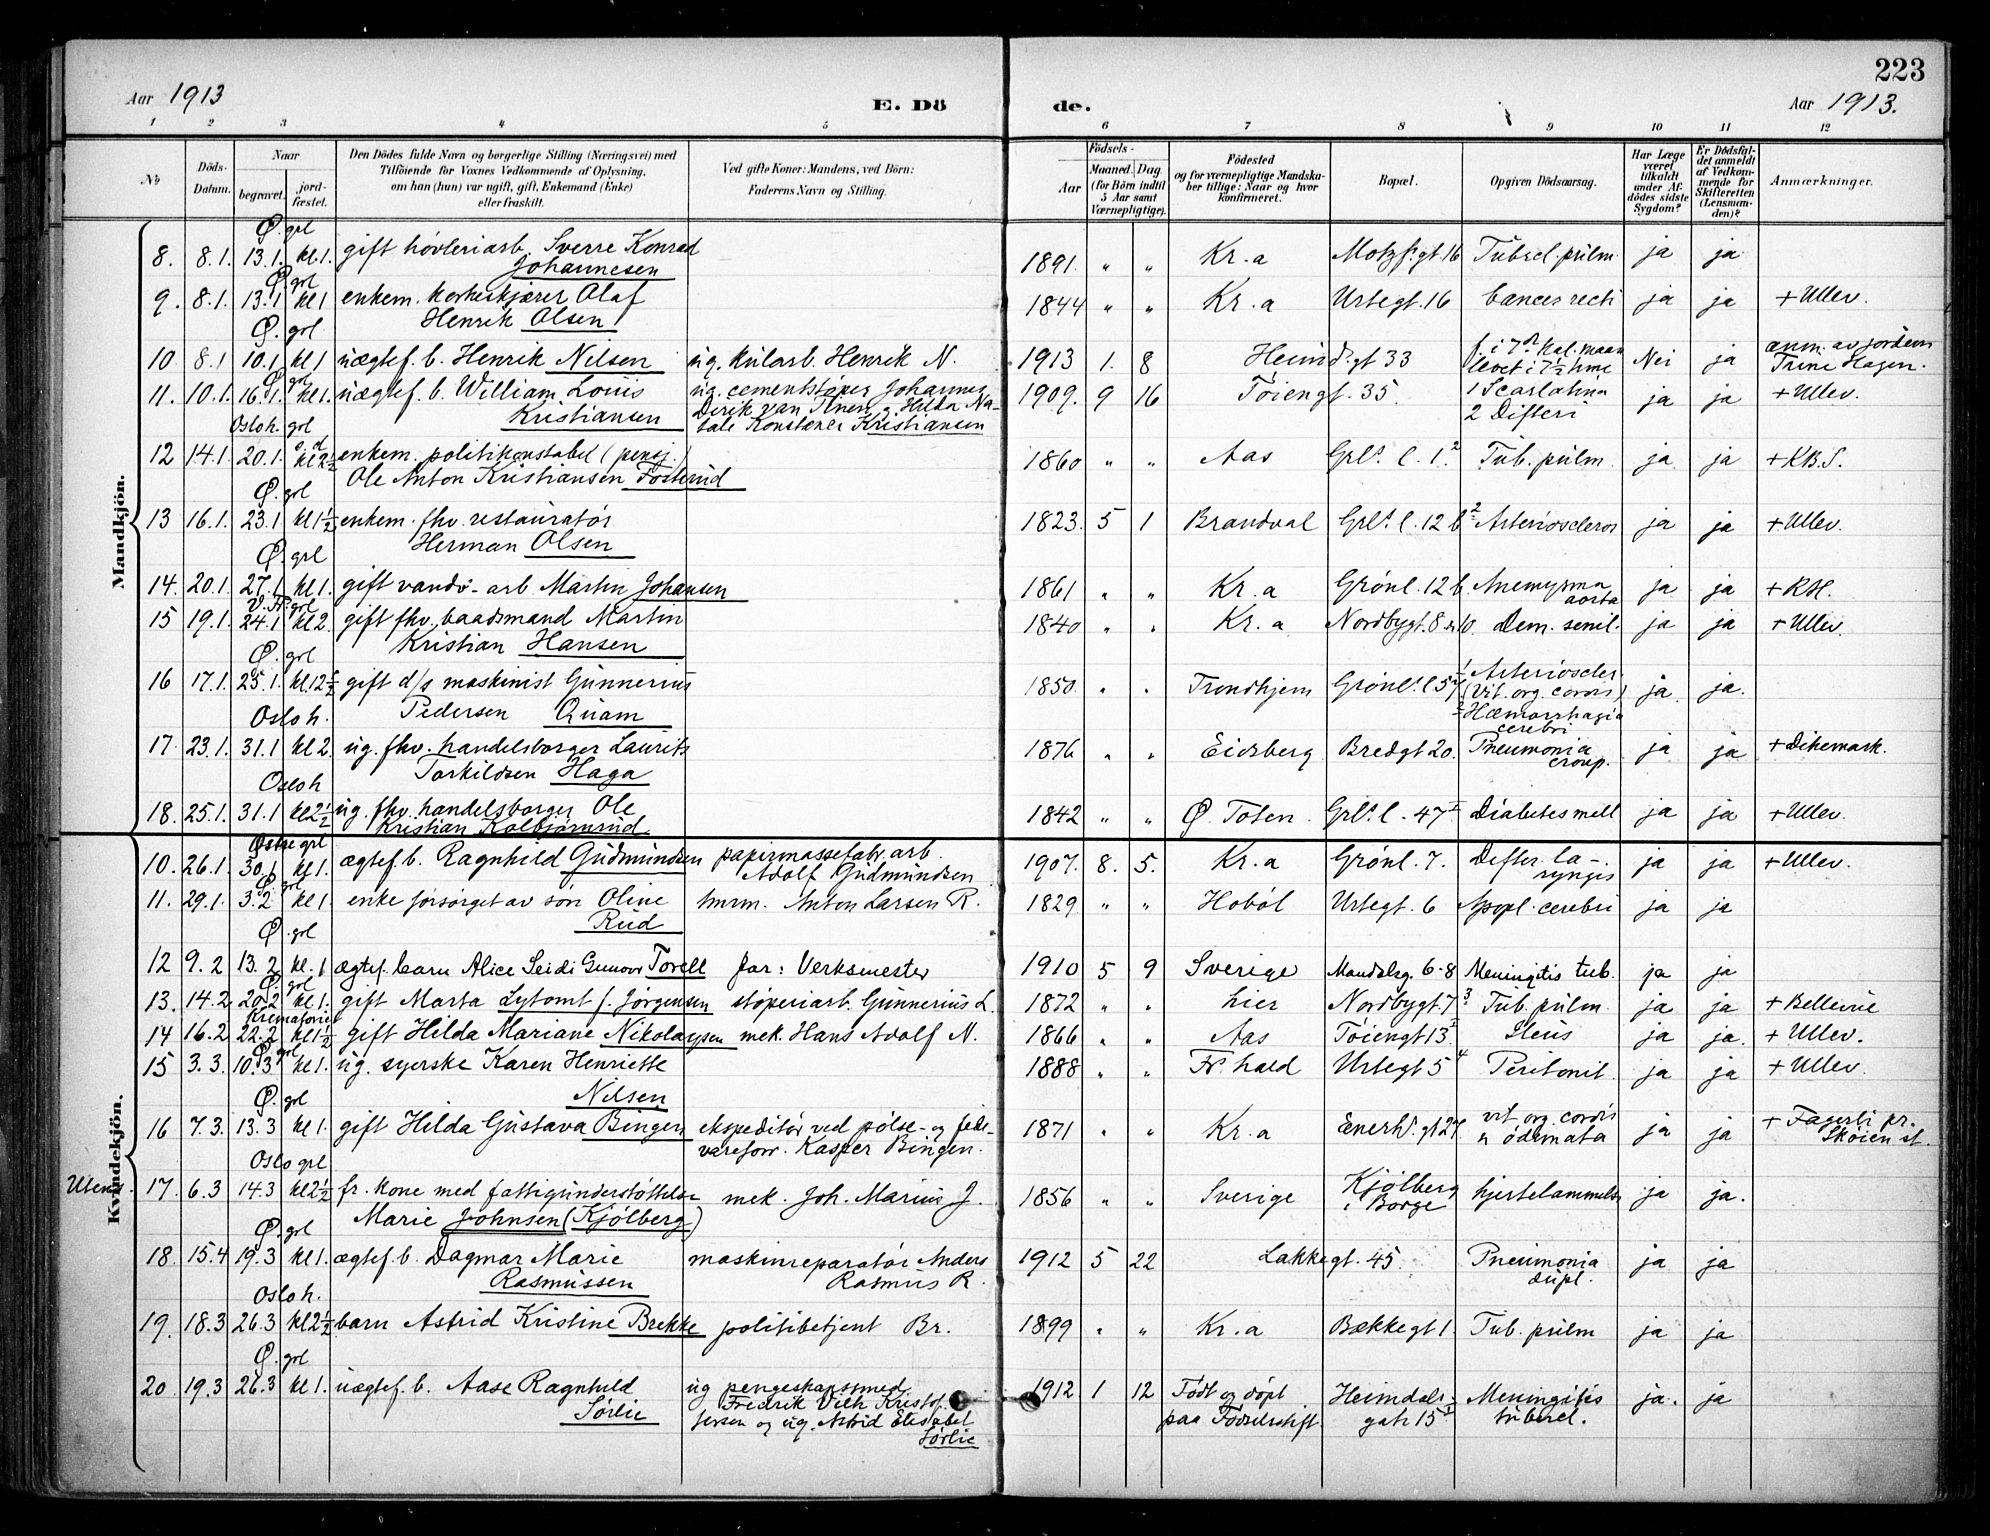 223
Aar 1913
E. Dö
de.
Aar 1913.
1 2 3 4 5 6 7 8 9 10 11 12
No
Döds-Datum.
Naar
begravet.
jord-fæstet.
Den Dödes fulde Navn og borgerlige Stilling (Næringsvei) med
Tilföiende for Voxnes Vedkommende af Oplysning,
om han (hun) var ugift, gift, Enkemand (Enke)
eller fraskilt.
Ved gifte Koner: Mandens, ved Börn:
Faderens Navn og Stilling.
Födsels-
Aar
Maaned. Dag
(for Börn indtil
5 Aar samt
Værnepligtige).
Födested
og for værnepligtige Mandska-
ber tillige: Naar og hvor
konfirmeret.
Bopæl.
Opgiven Dödsaarsag.
Har Læge
været
tilkaldt
under Af-
dödes sidste
Sygdom?
Er Dödsfal-
det anmeldt
af Vedkom-
mende for
Skifteretten
(Lensman-
den)?
Anmærkninger.
Mandkjön.
Ø. grl
8. 8.1. 13.1. kl.1. gift høvleriarb. Sverre Konrad 1891. " " Kr.a Motzf. gt. 16 Tubrcl. pulm ja ja
Johannesen
Ø. grl
9. 8.1. 13.1 kl 1 enkem. korkeskjærer Olaf 1844 " " Kr.a Urtegt. 16 Cancer recti ja ja + Ullev.
Henrik Olsen
Ø. grl
10 8.1 10.1 kl 1 uægtef. b. Henrik Nilsen ug. kularb. Henrik N. 1913 1. 8 Heimd. gt 33 f. i 7de kal. maan Nei ja anm. av jordem
levet i 7½ time Trine Hagen.
Ø grl
11. 10.1. 16.1. kl 1. uægtef. b. William Louis ug. cementstøper Johannes 1909. 9 16 Tøiengt. 35. 1 Scarlatina ja ja + Ullev.
Kristiansen Derik van g. Hilda Na- 2 Difteri
tale Konstance Kristiansen
Oslo h. grl
12 14.1. 20.1. kl 2½ enkem. politikonstabel (pensj.) 1860 " " Aas Grls. l. 1.2 Tub. pulm. ja ja + K.B.S.
Ole Anton Kristiansen Fosterud
Ø. grl
13 16.1. 23.1 kl 1½ enkem. fhv. restauratør 1823. 5 1 Brandval Grls. l. 12 b 2 Arterioscleros ja ja + Ullev.
Herman Olsen
Ø. grl
14. 20.1. 27.1 kl 1. gift vandv- arb Martin Johansen 1861 " " Kr.a Grønl. 12 b. Anemyrma ja ja + RH.
aorta
V. Ak. grl
15 19.1. 24.1 kl 2. gift fhv. baadsmand Martin 1840 " " Kr.a Nordbygt. 8 Dem. senil. ja ja + Ullev.
Kristian Hansen
Ø. grl
16 17.1. 25.1. kl 12½ gift d/s maskinist Gunnerius 1850 " " Trondhjem Grønl. l 57 1 Arterioscler ja ja.
Pedersen Quam (Vit. org. cordis)
2 Hæmorrhagia
cerebri
Oslo h.
17 23.1. 31.1 kl 2. ug. fhv. handelsborger Laurits 1876 " " Eidsberg Bredgt 20. Pneumonia ja ja + Dikemark.
Torkildsen Haga croup.
Oslo h
18. 25.1. 31.1 kl 2½ ug. fhv. handelsborger Ole 1842 " " Ø. Toten Grls. l. 47 I Diabetes mell ja ja + Ullev.
Kristian Kolbjørnsrud.
Kvindekjön.
Østre grl
10. 26.1. 30.1 kl 1. ægtef. b. Ragnhild Gudmundsen papirmassefabr. arb. 1907. 8. 5. Kr.a Grønl. 7. Difter. la- ja ja + Ullev.
Adolf Gudmundsen ryngis
Ø. grl
11. 29.1. 3.2 kl 1. enke forsørget av søn Oline tmrm. Anton Larsen R. 1829 " " Hobøl Urtegt. 6 Apopl. cerebri ja ja
Rud
Ø. grl
12 9.2 13.2 kl. 1 ægtef. barn Alice Seidi Gunvor Torell far: Verksmester 1910 5 9 Sverige Mandalsg. 6-8 Meningitis tub. ja ja
Ø. grl
13. 14.2 20.2 kl 1. gift Marta Lytomt f. Jørgensen støperiarb. Gunnerius L. 1872 " " Lier Nordbygt 7 3 Tub. pulm. ja ja + Bellevue
Krematoriet
14 16.2 22.2 kl 1½ gift Hilda Mariane Nikolaysen mek. Hans Adolf N. 1866 " " Aas Tøiengt 13 I Ileus ja ja. + Ullev.
Ø. grl
15 3.3. 10.3 kl 1. ug. syerske Karen Henriette 1888 " " Fr. hald Urtegt 5 4 Peritonit. ja ja + Ullev.
Nilsen
Ø. grl
16 7.3. 13.3 kl 1. gift Hilda Gustava Bingen ekspeditør ved pølse- og fede- 1871 " " Kr.a Enerh. gt 27. vit. org. cordis ja ja + Fagerli pr.
vareforr. Kasper Bingen. ødemata Skøien st.
Oslo grl
17. 6.3 14.3 kl 2½ fr. kone med fattigunderstøttelse mek. Joh. Marius J. 1856 " " Sverige Kjølberg hjertelammelse ja ja.
Marie Johnsen (Kjølberg) i Borge
Ø. grl
18. 15.4 19.3 kl 1. ægtef. b. Dagmar Marie maskinreparatør Anders 1912 5 22 Lakkegt. 45 Pneumonia ja ja
Rasmussen Rasmus R. dupl.
Oslo h.
19. 18.3 26.3 kl 2½ barn Astrid Kristine Brekke politibetjent Br. 1899 " " Kr.a Bækkegt 1. Tub. pulm ja ja
Ø. grl
20 19.3 26.3 kl 1. uægtef. b. Aase Ragnhild ug pengeskapssmed 1912. 1 12 Født og døpt Heimdals- Meningitis ja. ja
Sørlie Fredrik Vilh Kristof- paa Fødselsstift. gatr 15 I tubercl.
fersen og ug. Astrid Elisabet
Sørlie